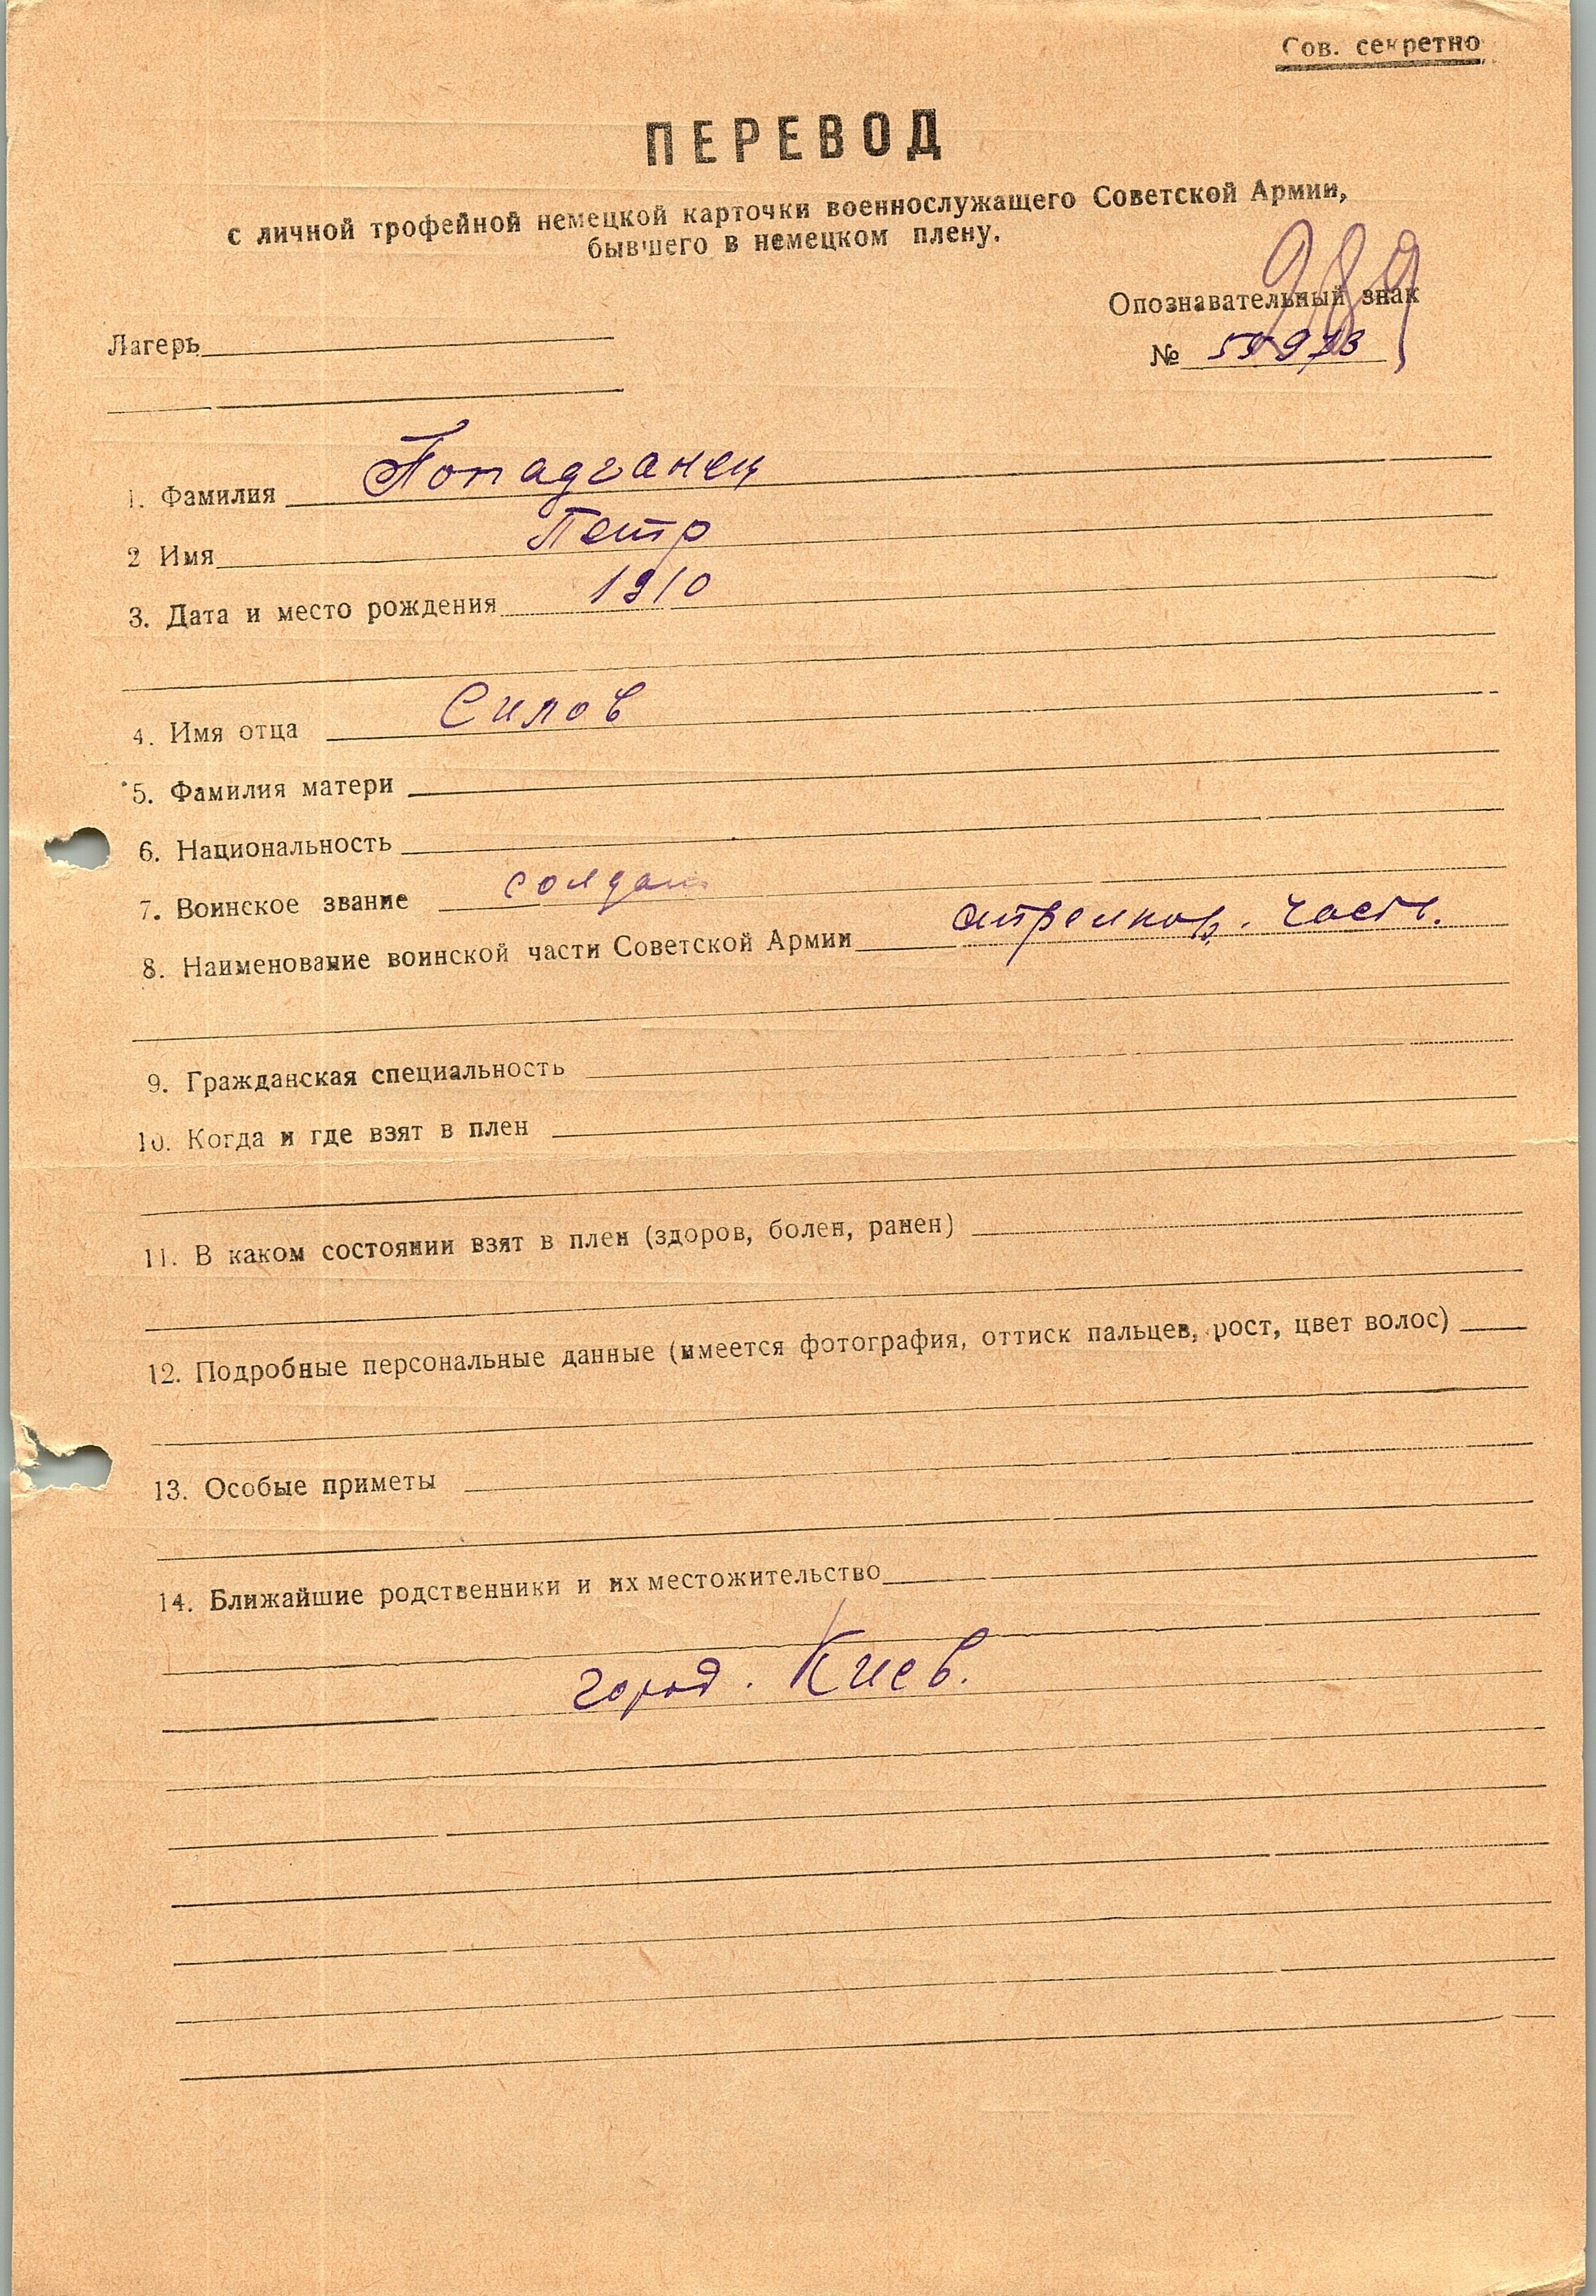 Сов. секретно
ПЕРЕВОД
с личной трофейной немецкой карточки военнослужащего Советской Армии,
бывшего в немецком плену.
989
Опознавательный знак
Лагерь
№
1. Фамилия Попадганец
2 Имя Петр
3. Дата и место рождения 1910
4. Имя отца Силов
5. Фамилия матери
6. Национальность
7. Воинское звание солдат
8. Наименование воинской части Советской Армии стрелков. часть.
9. Гражданская специальность
10. Когда и где взят в плен
11. В каком состоянии взят в плен (здоров, болен, ранен)
12. Подробные персональные данные (имеется фотография, оттиск пальцев, рост, цвет волос)
13. Особые приметы
14. Ближайшие родственники и их местожительство
город. Киев.